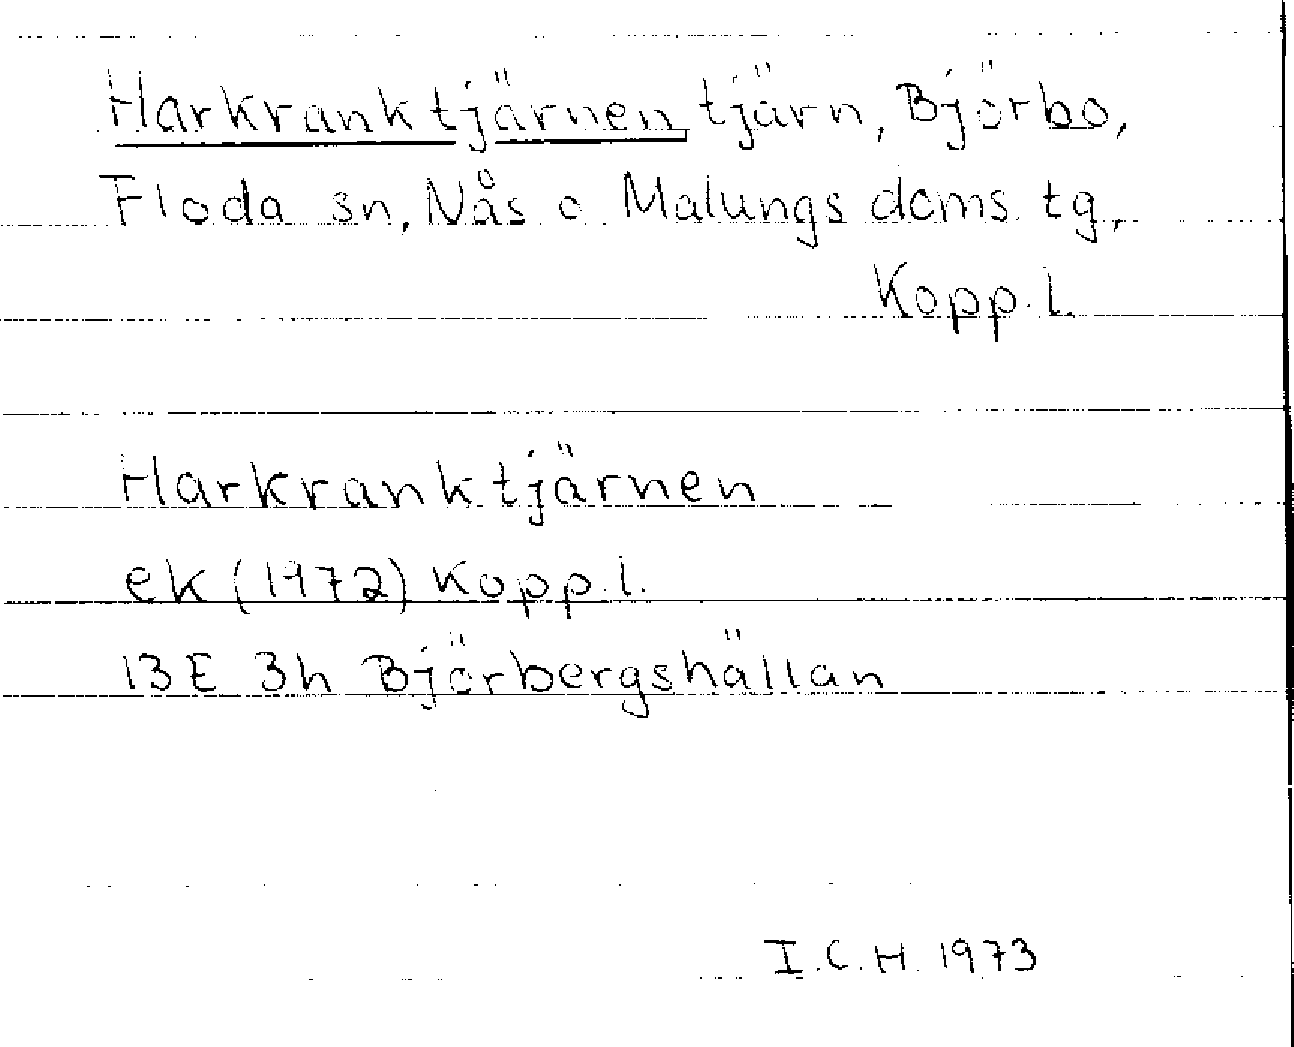 Harkranktjärnen tjärn, Björbo,
Floda sn, Nås o Malungs doms tg,
Kopp. l.
Harkranktjärnen
ek (1972) Kopp. l.
13E 3h Björbergshällan
I.C.H. 1973